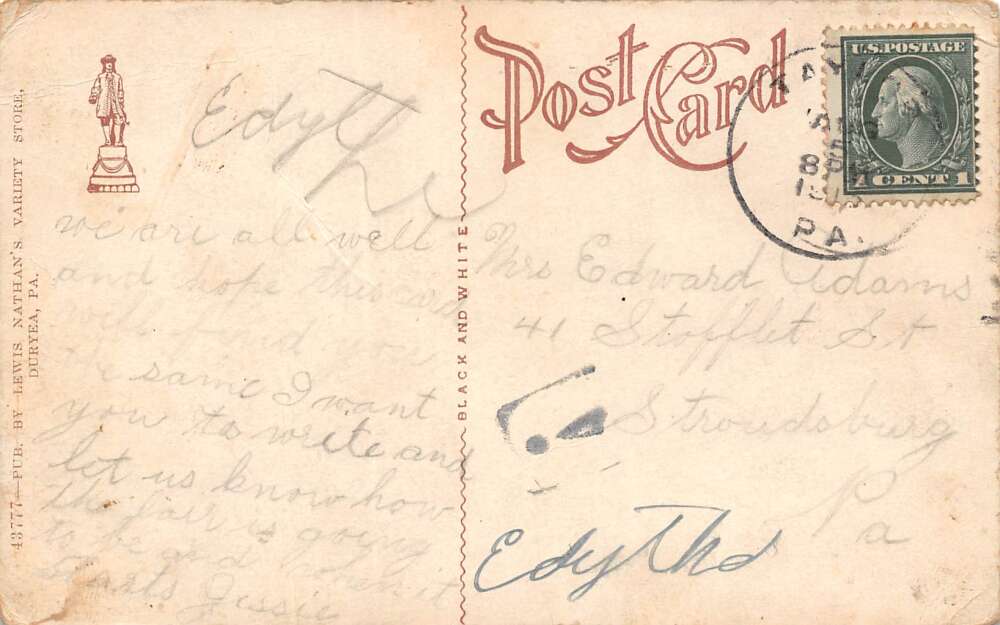 43777—PUB. BY LEWIS NATHAN'S VARIETY STORE,
DURYEA, PA.
Edyth
we are all well
and hope this card
will find you
the same I want
you to write and
let us know how
the fair is going
to be and when it
starts Jessie
BLACK AND WHITE
Post Card
U.S. POSTAGE
1 CENT 1
PA.
Mrs Edward Adams
41 Stofflet St
Stroudsburg
Pa